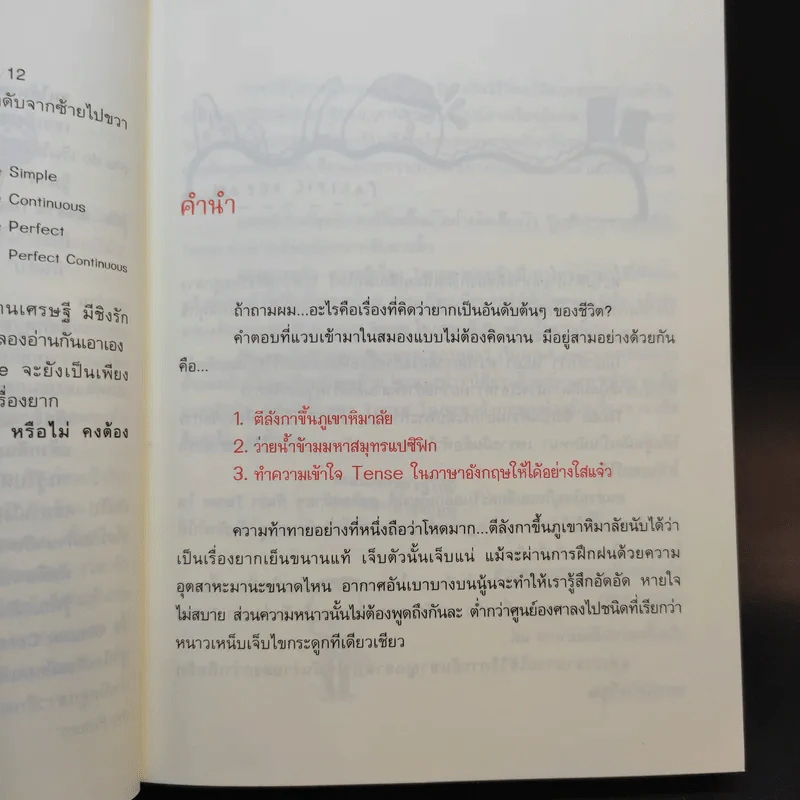 12
ดับจากซ้ายไปขวา
Simple
Continuous
Perfect
Perfect Continuous
านเศรษฐี มีชิงรัก
ลองอ่านกันเอาเอง
จะยังเป็นเพียง
รื่องยาก
หรือไม่ คงต้อง
คำนำ
ถ้าถามผม...อะไรคือเรื่องที่คิดว่ายากเป็นอันดับต้นๆ ของชีวิต?
คำตอบที่แวบเข้ามาในสมองแบบไม่ต้องคิดนาน มีอยู่สามอย่างด้วยกัน
คือ...
1. ตีลังกาขึ้นภูเขาหิมาลัย
2. ว่ายน้ำข้ามมหาสมุทรแปซิฟิก
3. ทำความเข้าใจ Tense ในภาษาอังกฤษให้ได้อย่างใสแจ๋ว
ความท้าทายอย่างที่หนึ่งถือว่าโหดมาก...ตีลังกาขึ้นภูเขาหิมาลัยนับได้ว่า
เป็นเรื่องยากเย็นขนานแท้ เจ็บตัวนั้นเจ็บแน่ แม้จะผ่านการฝึกฝนด้วยความ
อุตสาหะมานะขนาดไหน อากาศอันเบาบางบนนู้นจะทำให้เรารู้สึกอัดอัด หายใจ
ไม่สบาย ส่วนความหนาวนั้นไม่ต้องพูดถึงกันละ ต่ำกว่าศูนย์องศาลงไปชนิดที่เรียกว่า
หนาวเหน็บเจ็บไขกระดูกทีเดียวเชียว